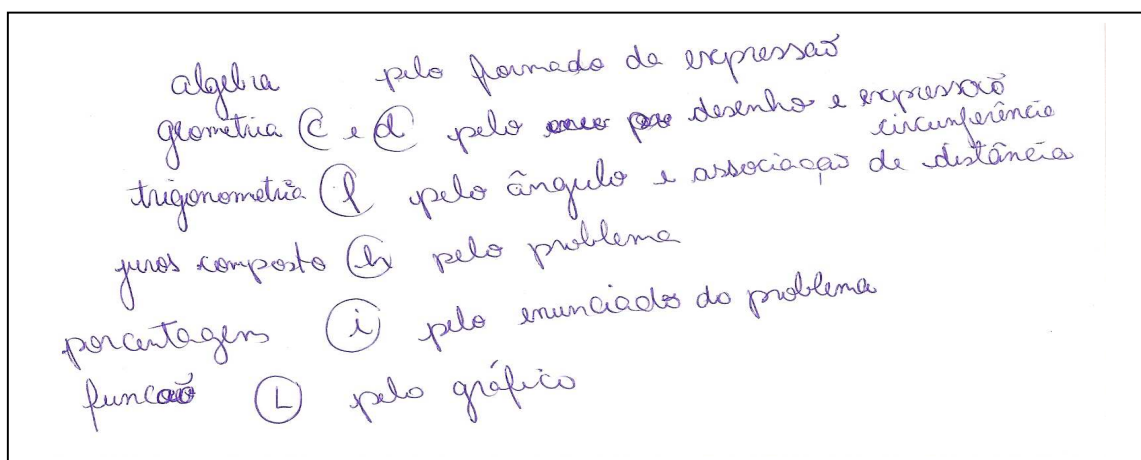 algebra pelo formado da expressaõ
geometria (c e (d pelo desenho e expressaõ
circunferência
trigonometria (f pelo ângulo e associaçaõ de distância
juros composto (h pelo problema
porcentagem (i) pelo enunciado do problema
funcaõ (L) pelo gráfico